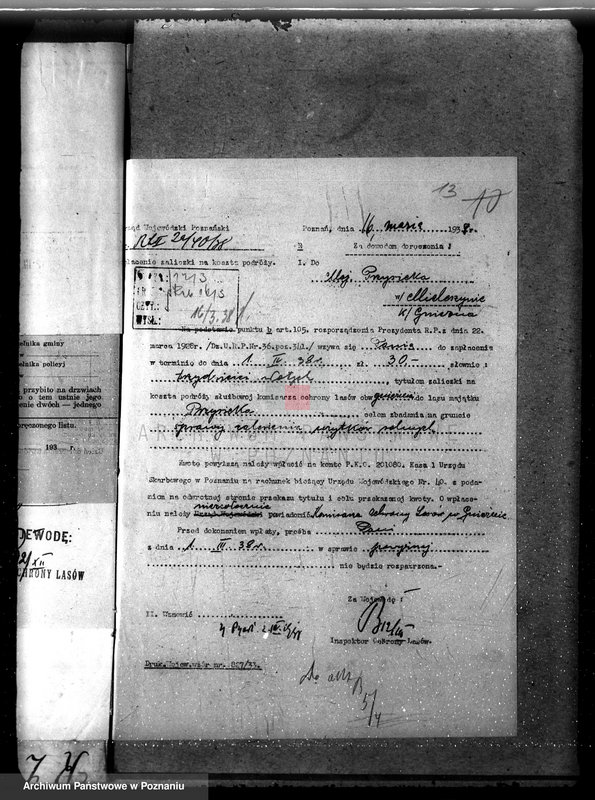 13 10
rząd Wojewódzki Poznański
Poznań, dnia 16 marca 1938r.
Za dowodem doręczenia !
płacenie zaliczki na koszta podróży.
I. Do
Maj. Przysieka
w/ Mieleszynie
k/ Gniezna
16/3.38
Na podstawie punktu b art.105, rozporządzenia Prezydenta R.P. z dnia 22.
marca 1928r. /Dz.U.R.P.Nr.36.poz.341./ wzywa się Pana do zapłacenia
w terminie do dnia 1. IV. 38r. zł 30- słownie :
trzydzieści złotych, tytułem zaliczki na
koszta podróży służbowej komisarza ochrony lasów obw. gnieźn. do lasu majątku
Przysieka, celem zbadania na gruncie
sprawy zalesienia użytków rolnych
Kwotę powyższą należy wpłacić na konto P.K.O. 201080. Kasa 1 Urzędu
Skarbowego w Poznaniu na rachunek bieżący Urzędu Wojewódzkiego Nr. 40. z poda-
niem na odwrotnej stronie przekazu tytułu i celu przekazanej kwoty. O wpłace-
niu należy niezwłocznie powiadomić Komisarza Ochrony Lasów w Gnieźnie.
Przed dokonaniem wpłaty, prośba Pana
z dnia 1. III. 38r. w sprawie powyższej
nie będzie rozpatrzona.-
Za Wojewodę :
II. Wznowić
Inspektor Ochrony Lasów.
Druk.Wojew.wzór nr. 827/33.
Do akt
5/4
elnika gminy
elnika policyj
przybito na drzwiach
o o tem ustnie jego
enie dwóch — jednego
oręczonego listu.
193 r.
EWODĘ:
CHRONY LASÓW
ARCHIWUM PAŃSTWOWE
W POZNANIU
Archiwum Państwowe w Poznaniu